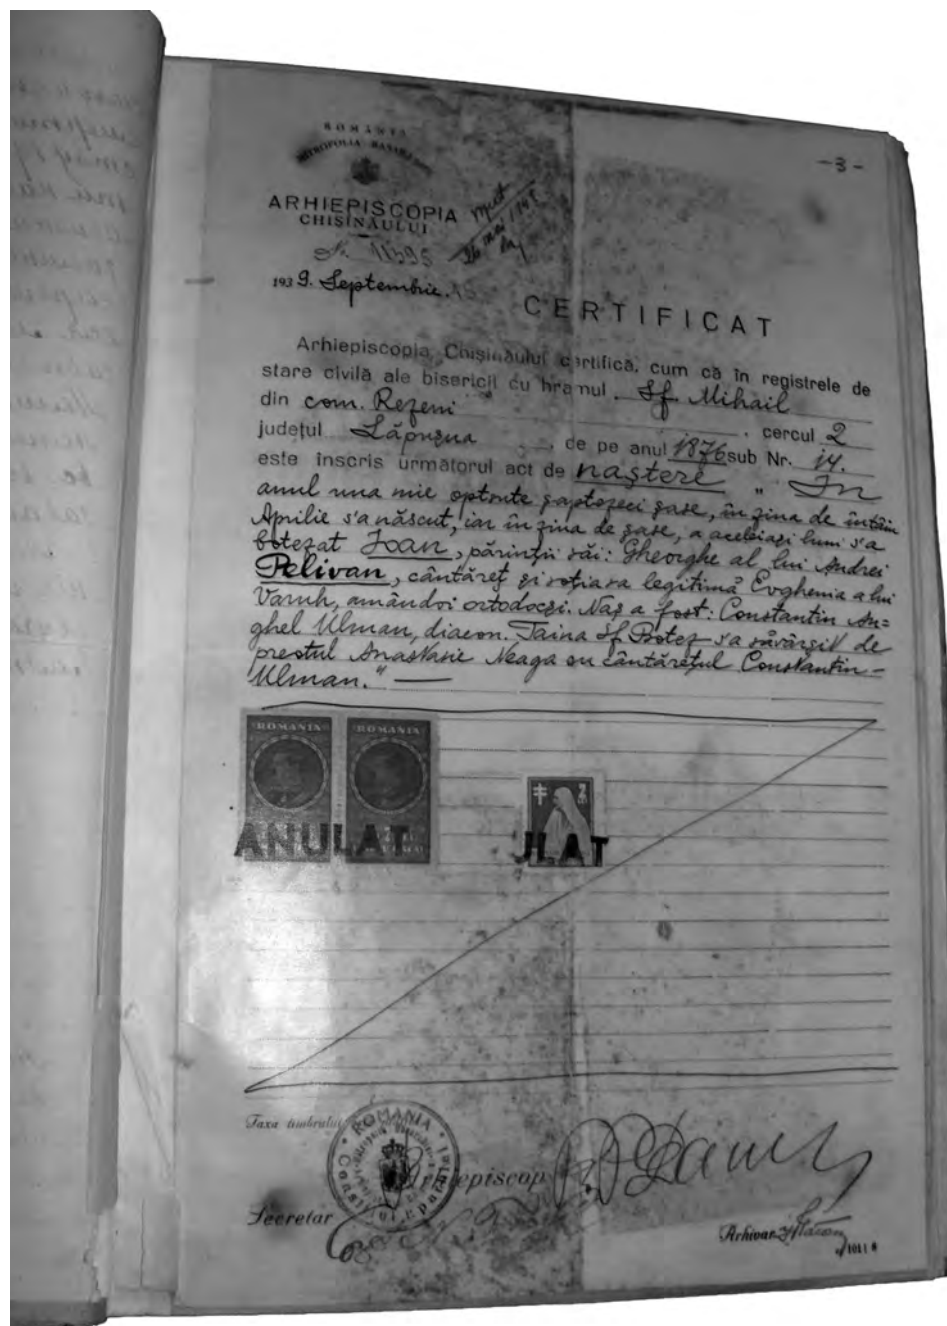 ROMANIA
MITROPOLIA BASARABIEI
-3-
ARHIEPISCOPIA
CHIȘINĂULUI
26 mai 1948
No. 11595
1939. Septembrie.
CERTIFICAT
Arhiepiscopia Chișinăului certifică, cum că în registrele de
stare civilă ale bisericii cu hramul Sf Mihail
din com. Rezeni, cercul 2
județul Lăpușna, de pe anul 1876 sub Nr. 14.
este înscris următorul act de naștere „ In
anul una mie optsute șaptezeci șase, în ziua de întâiu
Aprilie s'a născut, iar în ziua de șase, a aceleiași luni s'a
botezat Ioan, părinții săi: Gheorghe al lui Andrei
Pelivan, cântăreț și soția sa legitimă Evghenia a lui
Varuh, amândoi ortodocși. Naș a fost: Constantin An=
ghel Ulman, diacon. Taina Sf Botez s'a săvârșit de
preotul Anastasie Neaga cu cântărețul Constantin
Ulman." —
ROMANIA ROMANIA
ANULAT
ULAT
Taxa timbrului
ROMANIA
Arhiepiscop
Secretar
Arhivar